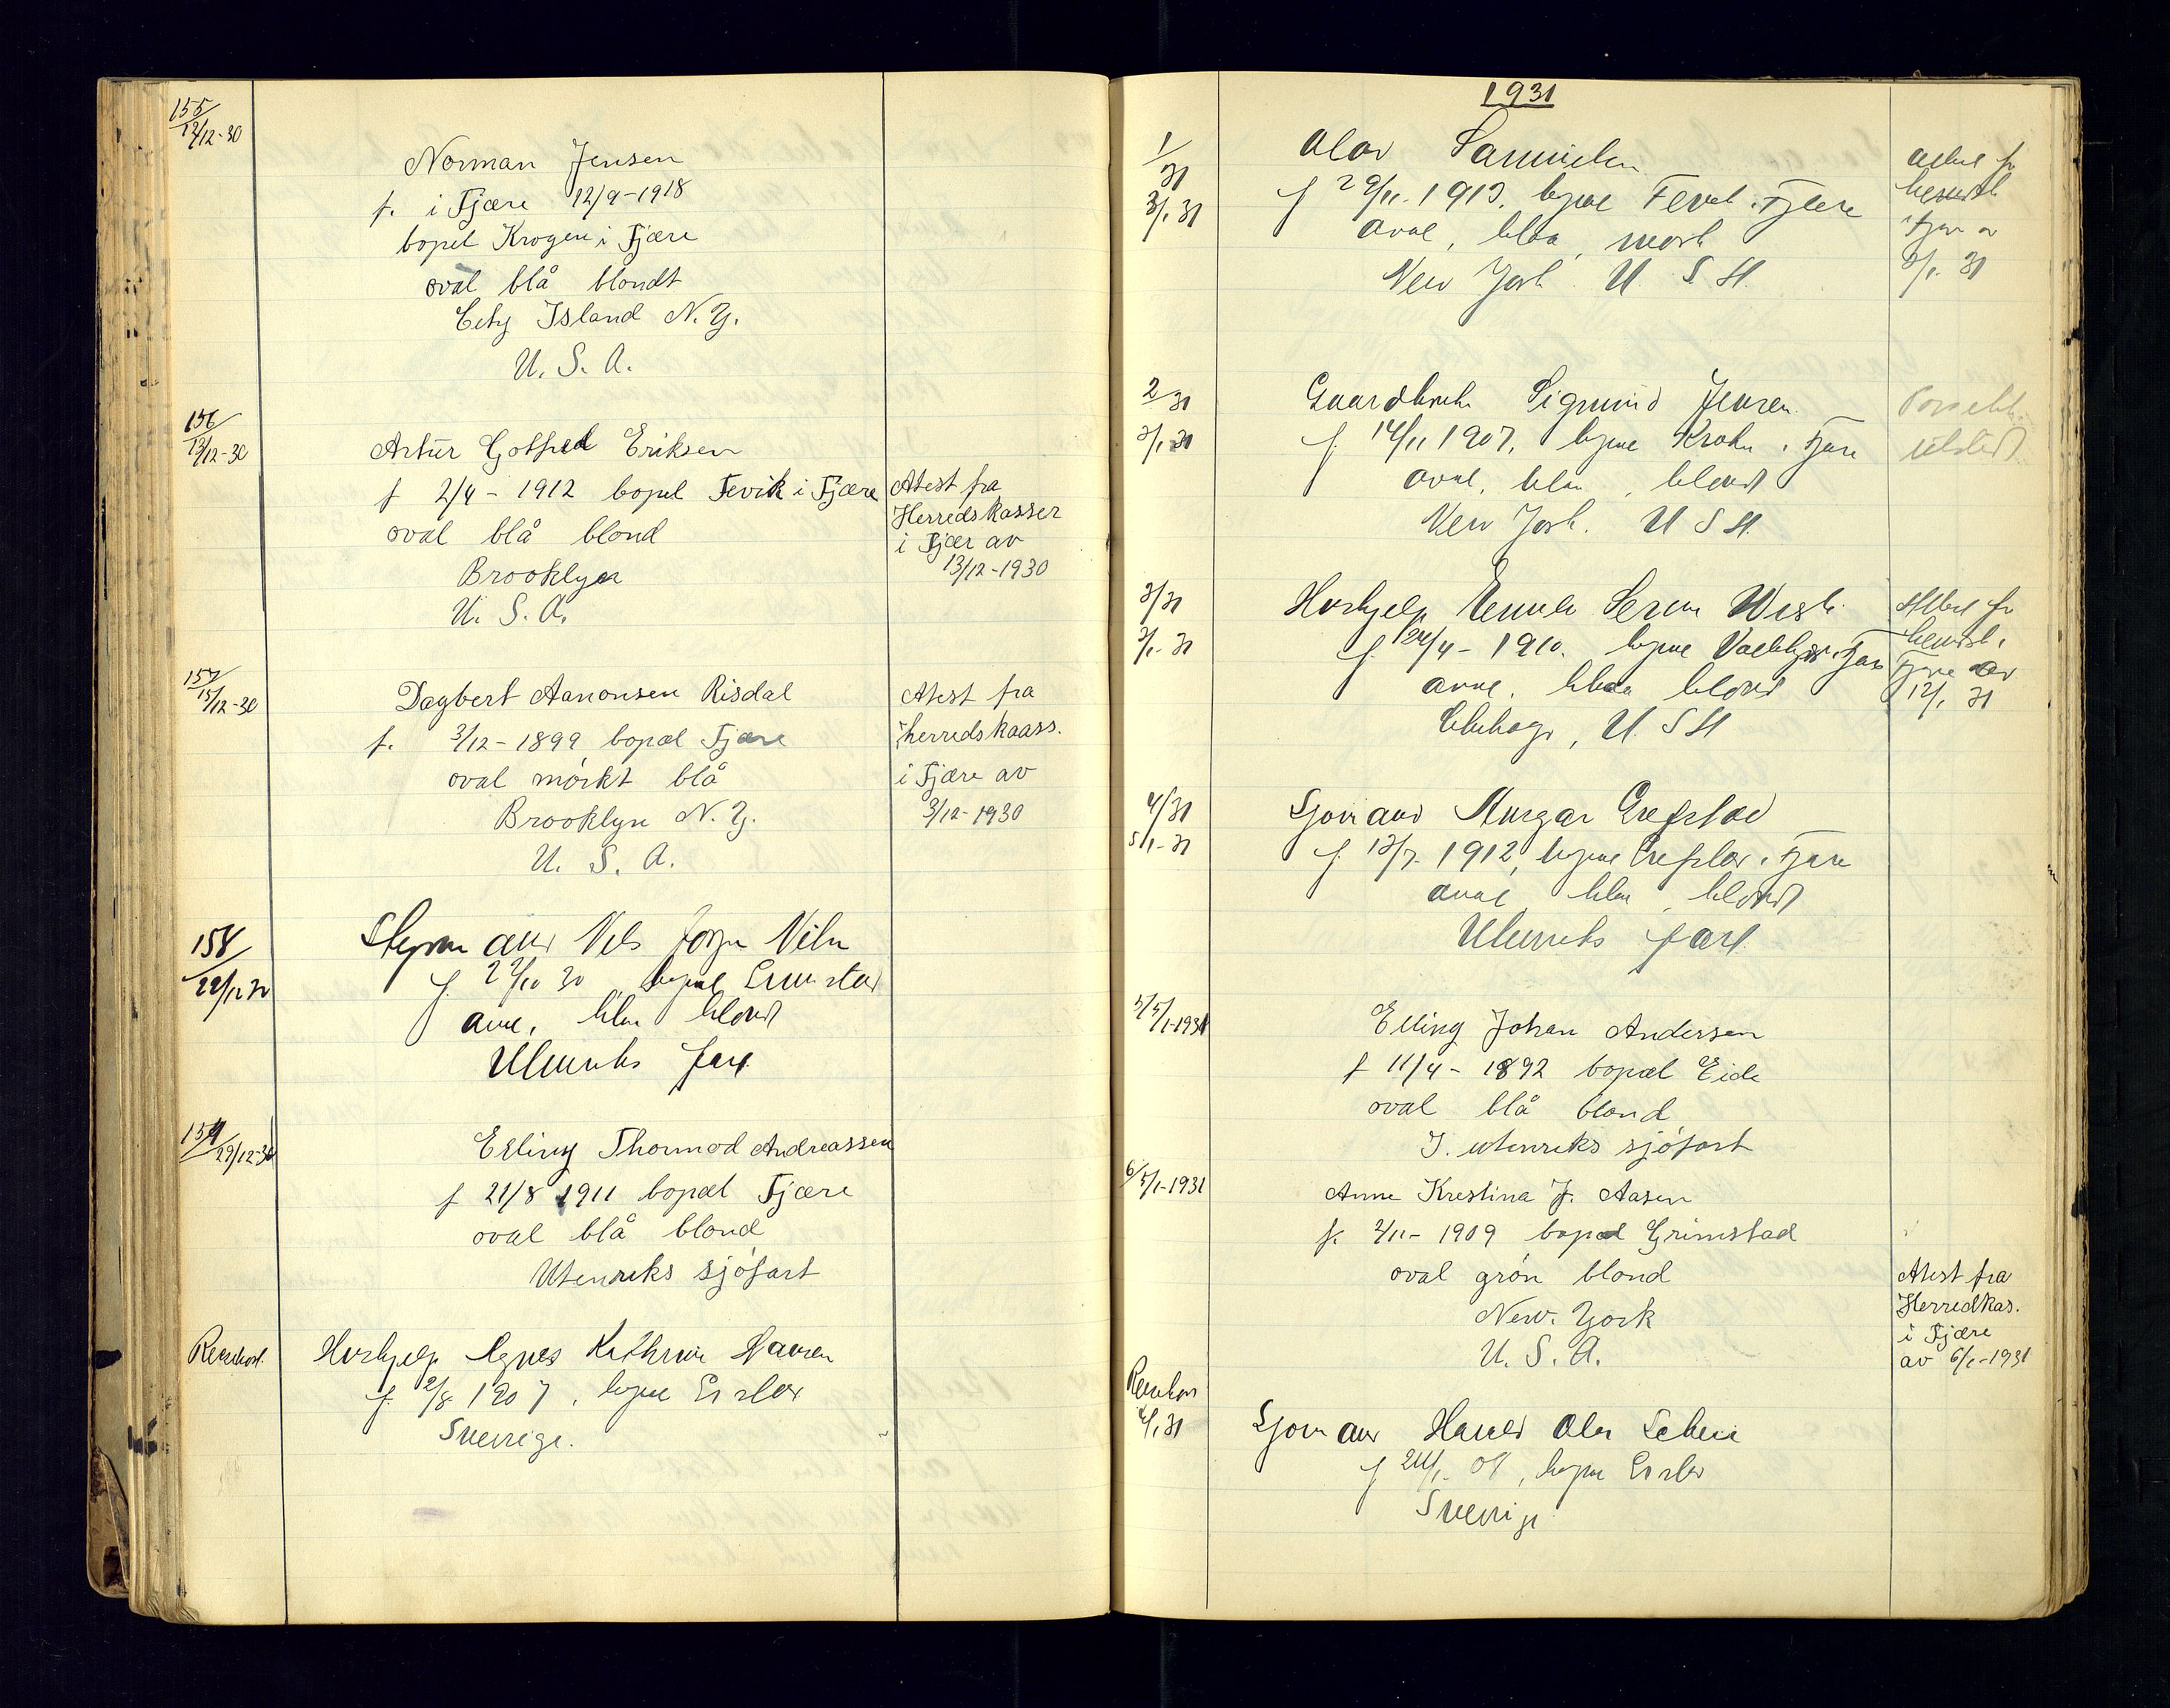 155/
12/12-30
Norman Jensen
f. i Fjære 12/9-1918
bopel Krogen i Fjære
oval blå blondt
City Island N.Y.
U. S. A.
156/
13/12-30
Artur Gotfred Eriksen
f 2/4 - 1912 bopel Fevik i Fjære
oval blå blond
Brooklyn
U. S. A.
Atest fra
Herredskasser
i Fjær av
13/12-1930
157/
15/12-30
Dagbert Aanonsen Risdal
f. 3/12-1899 bopæl Fjære
oval mörkt blå
Brooklyn N.Y.
U. S. A.
Atest fra
herredskaass.
i Fjære av
3/12-1930
158/
22/12 30
Styrmand Nils
f. bopæl Grimstad
oval, blaa blond
Utenriks fart.
159/
29/12-30
Erling Thormod Andreassen
f 21/8 1911 bopæl Fjære
oval blå blond
Utenriks sjöfart
Reisekort.
Hushjelp Agnes Kathrine Hansen
f. 2/8 1907, bopæl
Sverrige.
1931
1/
31
3/1 31
Olav Samuelsen
f 29/11. 1913. bopæl Fevik i Fjære
oval, blaa, mørk
New York U S A.
Attest fra
herredsk
Fjære av
3/1. 31
2/31
3/1 31
Gaardbruker Sigmund Jensen
f. 14/11 1907. bopæl i Fjære
oval, blaa, blond
New York. U S A.
utsted
3/31
3/1-31
Hushjelp
f. 24/4 - 1910. bopæl i Fjære
oval, blaa blond
Chikago, U. S A
Attest fra
herredsk.
Fjære av
12/1 31
4/31
5/1-31
Sjømand Ansgar Grefstad
f. 13/7. 1912, bopæl Grefstad i Fjære
oval blaa, blond
Utenriks fart.
5/5/1-1931
Erling Johan Andersen
f 11/4 - 1892 bopæl Eide
oval blå blond
I. utenriks sjöfart
6/5/1-1931
Anne Krestina J. Aasen
f. 2/11-1909 bopæl Grimstad
oval grön blond
New. York
U. S. A.
Atest fra
Herredkas.
i Fjære
av 6/1-1931
Reisekort
4/1 31
Sjømand Harald Olav
f 24/1. 04, bopæl
Sverrige